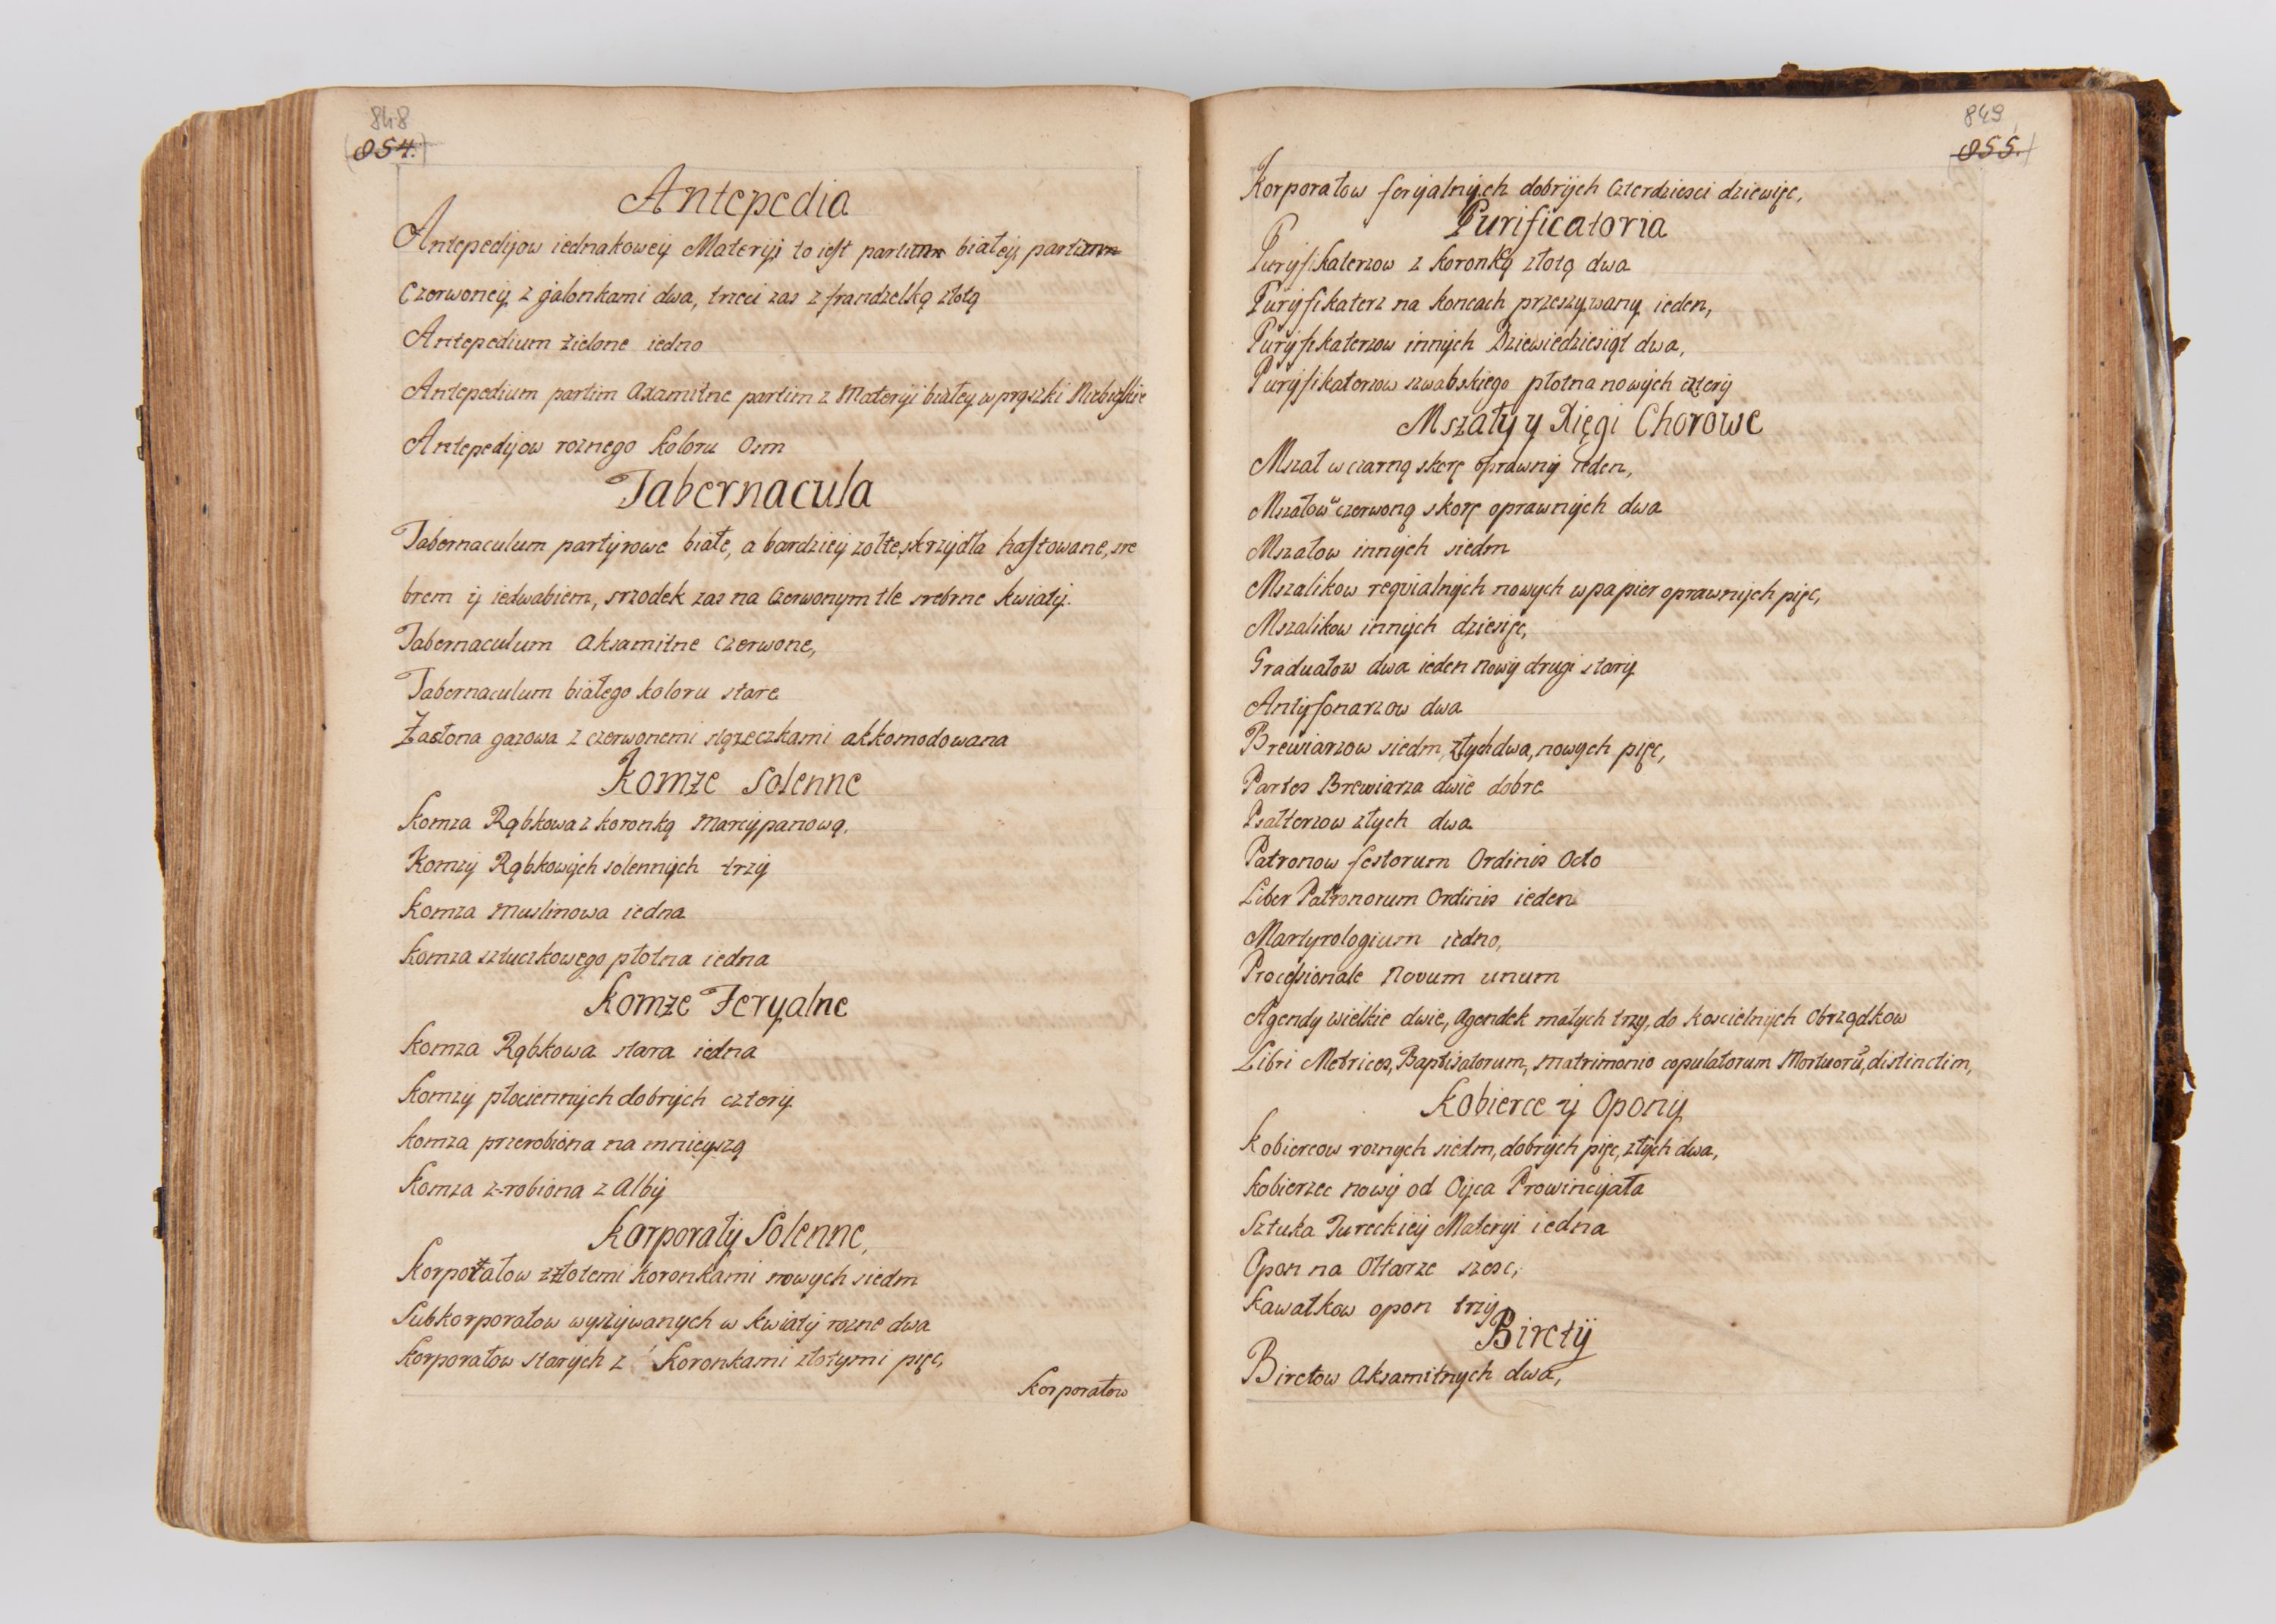 848
854.
Antepedia
Antepedijow iednakoweij Materiji to iest partim białeij, partim
Czerwoneij z galonkami dwa, trzeci zas z frandzelką złotą
Antepedium zielone iedno
Antepedium partim axamitne partim z Materiji białey w prązki
Antepedijow roznego koloru Osm
Tabernacula
Tabernaculum partyrowe białe, a bardzieij zołte, skrzijdła haftowane, sre
brem ij iedwabiem, srzodek zas na czerwonym tle srebrne kwiatij.
Tabernaculum aksamitne czerwone,
Tabernaculum białego koloru stare
Zasłona gazowa z czerwonemi stązeczkami akkomodowana
Komze Solenne
Komza Rąbkowa z koronką marcijpanową,
Komzij Rąbkowijch solennijch trzij
Komza Muslinowa iedna
Komza sztuczkowego płotna iedna
Komze Feryalne
Komza Rąbkowa stara iedna
Komzij płociennijch dobrijch czterij
Komza przerobiona na mnieyszą
Komza z-robiona z Albij
Korporałij Solenne,
Korporałow złotemi koronkami nowych siedm
Subkorporałow wyszijwanych w kwiatij rozne dwa
Korporałow starijch z koronkami złotymi pięc,
Korporałow
849
855.
Korporałow feryalnijch dobrijch czterdziesci dziewięc,
Purificatoria
Purijfikaterzow z koronką złotą dwa
Purijfikaterz na koncach przeszijwanij ieden,
Purijfikaterzow innijch Dziewiedziesiąt dwa,
Purijfikaterzow szwabskiego płotna nowijch czterij
Mszałij y Xięgi Chorowe
Mszał w czarną skorę oprawnij ieden,
Mszałow w czerwoną skorę oprawnijch dwa
Mszałow innijch siedm
Mszalikow requialnijch nowych w papier oprawnijch pięc,
Mszalikow innijch dziesięc,
Graduałow dwa ieden nowij drugi starij
Antyfonarzow dwa
Brewiarzow siedm, złych dwa, nowych pięc,
Partes Brewiarza dwie dobre
Psałterzow złych dwa
Patronow festorum Ordinis Octo
Liber Patronorum Ordinis ieden
Martyrologium iedno,
Processionale Novum unum
Agendy wielkie dwie, Agendek małych trzy, do koscielnijch Obrządkow
Libri Metrices, Baptisatorum, matrimonio copulatorum Mortuorũ, distinctim,
Kobierce ij Oponij
Kobiercow roznych siedm, dobrijch pięc, złych dwa,
Kobierzec nowij od Oijca Prowincijała
Sztuka Tureckieij Materyi iedna
Opon na Ołtarze szesc,
Kawałkow opon trzij
Biretÿ
Biretow Aksamitnych dwa,